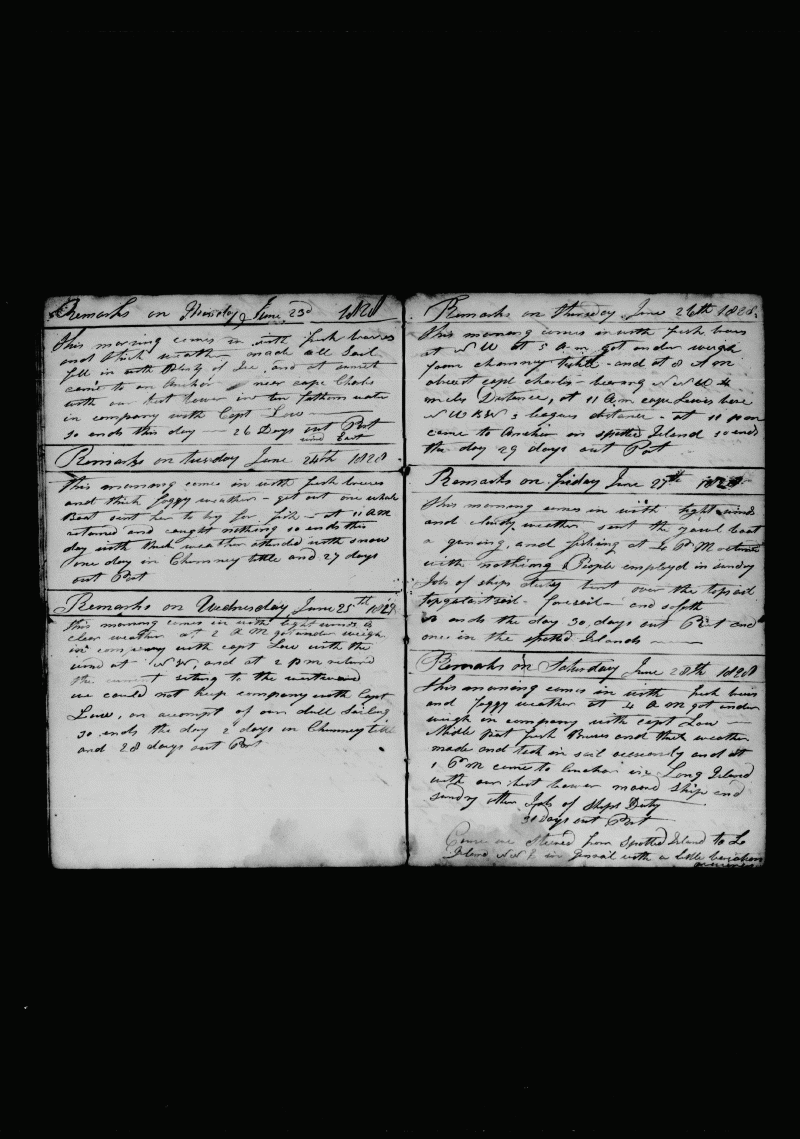 Remarks on Munday June 23d 1828
This morning comes in with fresh breeses
and thick weather made all Sail
fell in with plenty of Ice, and at sunset
came to an Anchor near cape Charles
with our best bower in ten fathoms water
in company with Capt Low
so ends this day 26 Days out Port
wind East
Remarks on tuesday June 24th 1828
This morning comes in with fresh breeses
and thick foggy weather - got out one whale
Boat sent her to try for fish - at 11 AM
returned and caught nothing so ends this
day with thick weather attended with snow
one day in Chimney tickle and 27 days
out Port
Remarks on Wednesday June 25th 1828
This morning comes in with light winds &
clear weather at 2 AM got under weigh
in company with capt Low with the
wind at NW, and at 2 pm
the current seting to the westward
we could not keep company with Capt
Low, on accompt of our dull Sailing
so ends the day 2 days in Chimney tickle
and 28 days out Port
Remarks on thursday June 26th 1828
This morning comes in with fresh breeses
at NW at 5 am got under weigh
from chimney tickle - and at 8 AM
abrest cape charles - bearing NNW 4
miles Distance, at 11 AM cape Lewis bore
NWBW 3 leagues distance - at 11
came to Anchor on spotted Island so ends
the day 29 days out Port
Remarks on friday June 27th 1828
This morning comes in with light winds
and weather, sent the yawl boat
a guning, and fishing at 4 PM returned
with nothing People employd in sundry
Jobs of ships duty bent over the topsail
topgalantsail - foresail - and so forth
so ends the day 30, days out Port and
one in the spotted Islands
Remarks on Saturday June 28th 1828
This morning comes in with fresh breeses
and foggy weather at 4 AM got under
weigh in company with capt Low
Middle part fresh Breeses and thick weather
made and tock in sail accurdly and at
1 PM came to Anchor in Long Island
with our best bower moord ship and
sundry other Jobs of Ships Duty
31 Days out Port
Course we steared from Spotted Island to Lo
Island in Genrail with a little variation